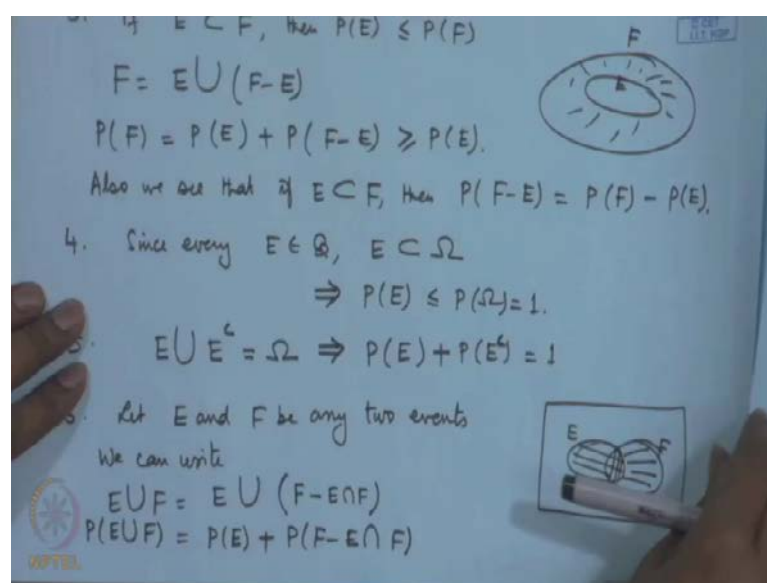 3. If E ⊂ F, then P(E) ≤ P(F)
F
F = E ∪ (F-E)
E
P(F) = P(E) + P(F-E) ≥ P(E).
Also we see that if E ⊂ F, then P(F-E) = P(F) - P(E).
4. Since every E ∈ B, E ⊂ Ω
⇒ P(E) ≤ P(Ω) = 1.
E ∪ E^c = Ω ⇒ P(E) + P(E^c) = 1
Let E and F be any two events
We can write
E F
E∪F = E ∪ (F-E∩F)
P(E∪F) = P(E) + P(F-E∩F)
NPTEL